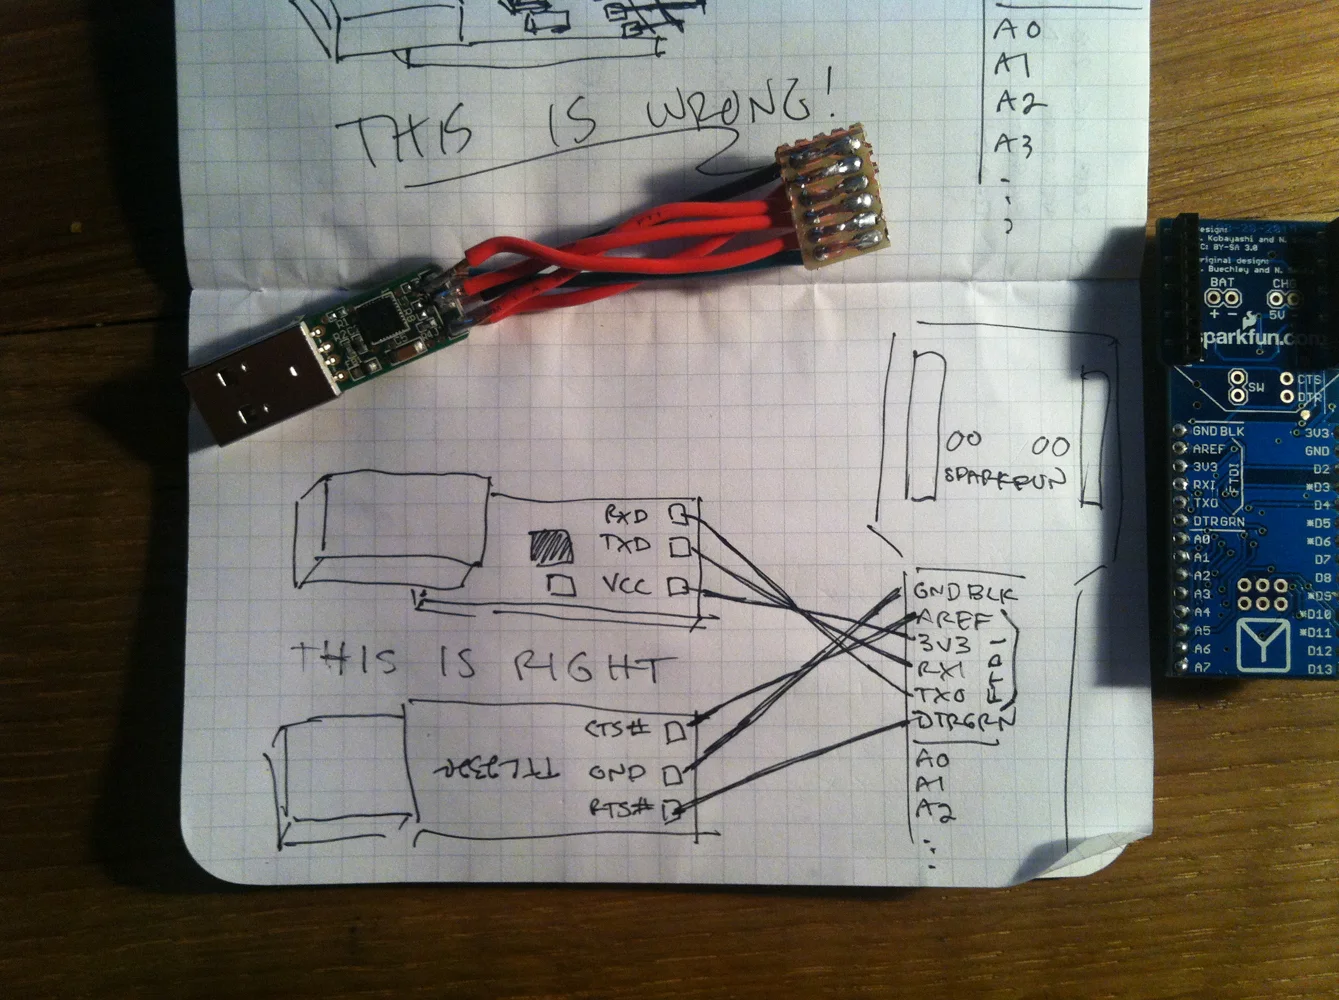 A0
A1
A2
A3
THIS IS WRONG!
design:
Kobayashi and N.
BY-SA 3.0
original design:
Buechley and N.
BAT
CHG
+ -
5V
sparkfun.com
SW
CTS
DTR
GND BLK
AREF
3V3
RXI
TXO
DTRGRN
FTDI
A0
A1
A2
A3
A4
A5
A6
A7
3V3
GND
D2
*D3
D4
*D5
*D6
D7
D8
*D9
*D10
*D11
D12
D13
SPARKFUN
RXD
TXD
VCC
THIS IS RIGHT
CTS#
GND
RTS#
TTL232R
GND BLK
AREF
3V3
RXI
TXO
DTRGRN
FTDI
A0
A1
A2